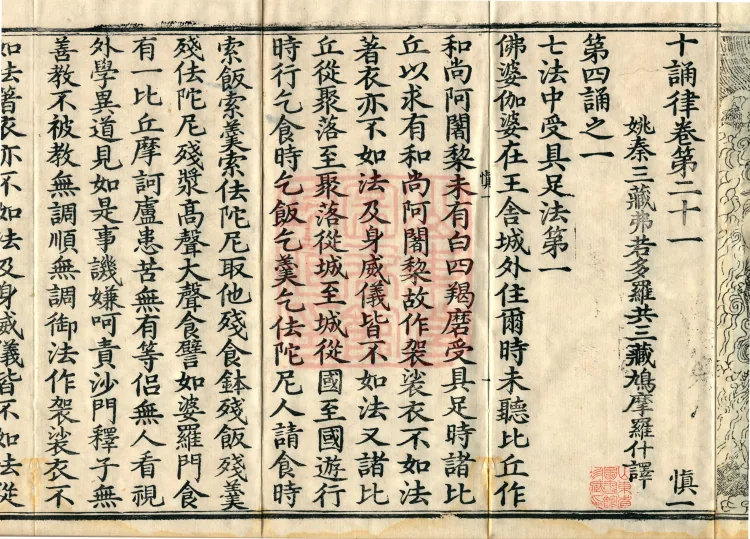 十誦律卷第二十一 慎一
姚秦三藏弗若多羅共三藏鳩摩羅什譯
第四誦之一
七法中受具足法第一
佛婆伽婆在王舍城外住爾時未聽比丘作
慎一
和尚阿闍黎未有白四羯磨受具足時諸比
丘以求有和尚阿闍黎故作袈裟衣不如法
著衣亦不如法及身威儀皆不如法又諸比
丘從聚落至聚落從城至城從國至國遊行
時行乞食時乞飯乞羹乞佉陀尼人請食時
索飯索羹索佉陀尼取他殘食鉢殘飯殘羹
殘佉陀尼殘漿高聲大聲食譬如婆羅門食
有一比丘摩訶盧患苦無有等侶無人看視
外學異道見如是事譏嫌呵責沙門釋子無
善教不被教無調順無調御法作袈裟衣不
如法著衣亦不如法及身威儀皆不如法從